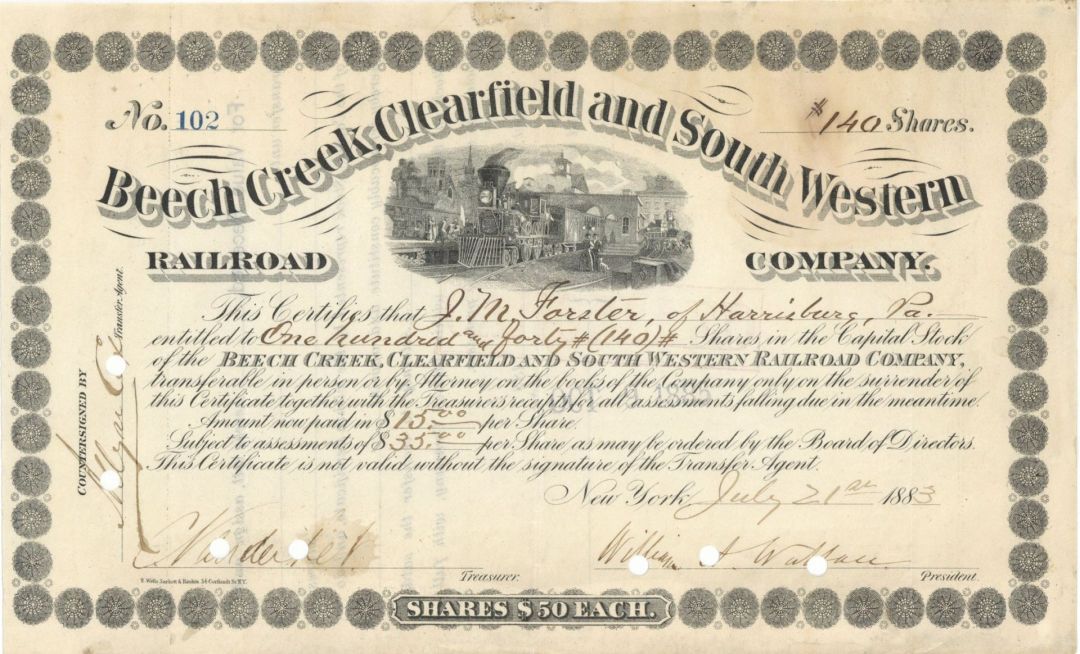 No. 102
# 140 Shares.
Beech Creek, Clearfield and South Western
RAILROAD COMPANY.
This Certifies that J. M. Forster, of Harrisburg, Pa.
entitled to One hundred and forty # (140) # Shares, in the Capital Stock
of the BEECH CREEK, CLEARFIELD AND SOUTH WESTERN RAILROAD COMPANY,
transferable in person or by Attorney on the books of the Company only on the surrender of
this Certificate together with the Treasurers receipts for all assessments falling due in the meantime.
Amount now paid in $15.00 per Share.
Subject to assessments of $35.00 per Share, as may be ordered by the Board of Directors.
This Certificate is not valid without the signature of the Transfer Agent.
New York, July 21st 1883
C. Vanderbilt
Treasurer.
William A. Wallace
President.
COUNTERSIGNED BY
Transfer Agent.
SHARES $50 EACH.